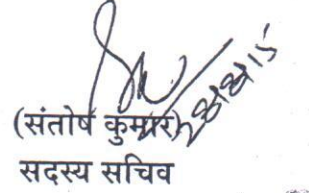 (संतोष कुमार)
सदस्य सचिव